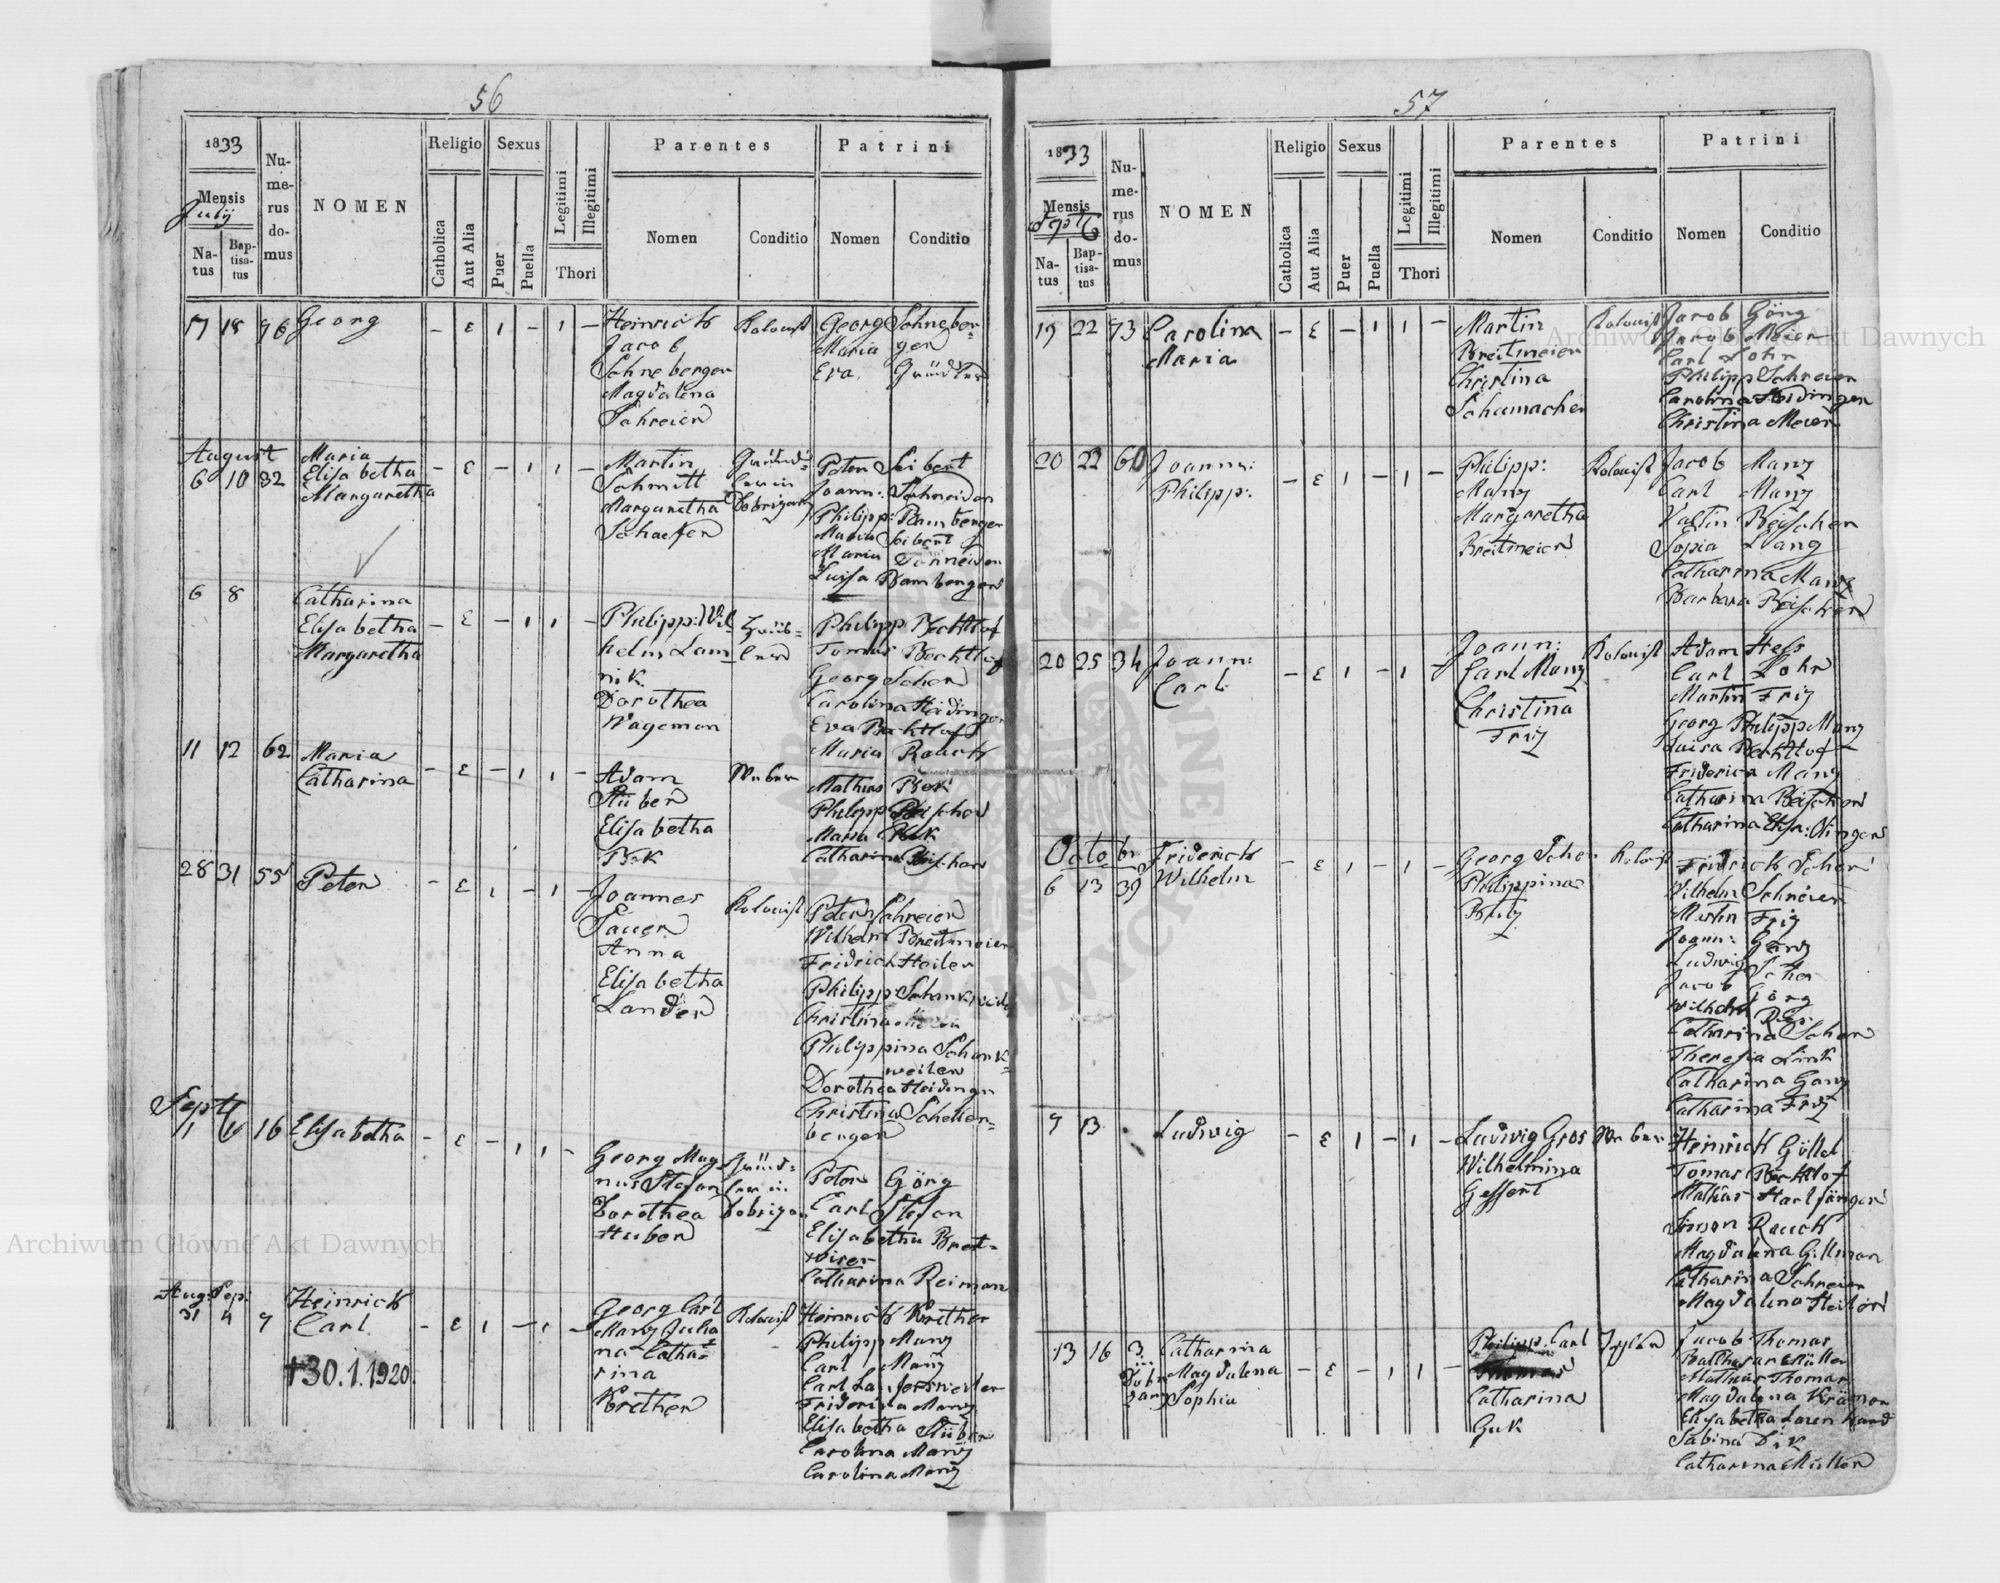 56
1833
Mensis
July
Na-
tus
Bap-
tisa-
tus
Nu-
me-
rus
do-
mus
NOMEN
Religio
Catholica
Aut Alia
Sexus
Puer
Puella
Legitimi
Illegitimi
Thori
Parentes
Nomen
Conditio
Patrini
Nomen
Conditio
17 18 96 Georg
- ε 1 - 1 -
Heinrich
Jacob
Schneberger
Magdalena
Schreier
Kolonist
Georg Schneber-
Maria ger
Eva
August
6 10 32
Maria
Elisabetha
Margaretha
- ε - 1 1 -
Martin
Schmitt
Margaretha
Schaefer
Peter Seibert
Joann: Schneider
Philipp: Bamberger
Maria Seibert
Maria Schneider
Luisa Bamberger
6 8
Catharina
Elisabetha
Margaretha
- ε - 1 1 -
Philipp: Wil
helm Lam
nik
Dorothea
Wageman
Philipp Bechtlof
Tomas Bechtlof
Georg Scher
Carolina Heidinger
Eva Bechtlof
Maria Rauch
11 12 62
Maria
Catharina
- ε - 1 1 -
Adam
Stüber
Elisabetha
Bek
Weber
Mathias Bek
Philipp Beischer
Maria Bek
Catharina Beischer
28 31 55 Peter
- ε 1 - 1 -
Joannes
Sauer
Anna
Elisabetha
Lander
Kolonist
Peter Schreier
Wilhelm Breitmeier
Fridrich Heiler
Philipp Schankweiler
Christina
Philippina Schank-
weiler
Dorothea Heidinger
Christina Schellen-
berger
Septb
1 16 Elisabetha
- ε - 1 1 -
Georg Mag-
nus Stefan
Dorothea
Huber
Peter Görg
Carl Stefan
Elisabetha Breit-
wiser
Catharina Reiman
Aug: Sep:
31 4 7
Heinrich
Carl
†30.1.1920
- ε 1 - 1 -
Georg Carl
Manz Julia
na Catha-
rina
Krether
Kolonist
Heinrich Krether
Philipp Manz
Carl Manz
Carl Lauferswerler
Friderika Manz
Elisabetha Stüber
Carolina Manz
Carolina Manz
57
1833
Mensis
Septb
Na-
tus
Bap-
tisa-
tus
Nu-
me-
rus
do-
mus
NOMEN
Religio
Catholica
Aut Alia
Sexus
Puer
Puella
Legitimi
Illegitimi
Thori
Parentes
Nomen
Conditio
Patrini
Nomen
Conditio
19 22 73
Carolina
Maria
- ε - 1 1 -
Martin
Breitmeier
Christina
Schumacher
Kolonist
Jacob Görg
Jacob Meier
Carl Lohr
Philipp Schreier
Carolina Heidinger
Christina Meier
20 22 60
Joann:
Philipp:
- ε 1 - 1 -
Philipp:
Manz
Margaretha
Breitmeier
Kolonist
Jacob Manz
Carl Manz
Valtin Beischer
Sopia Lang
Catharina Manz
Barbara Beischer
20 25 34
Joann:
Carl
- ε 1 - 1 -
Joann:
Carl Manz
Christina
Friz
Kolonist
Adam Hess
Carl Rohr
Martin Friz
Georg Philipp Manz
Luisa Bechtlof
Friderica Manz
Catharina Beischer
Catharina Elisa: Dinger
Octobr
6 13 39
Friderich
Wilhelm
- ε 1 - 1 -
Georg Scher
Philippina
Buz
Kolonist
Fridrich Scher
Wilhelm Schreier
Martin Friz
Joann: Ganz
Ludwig Scher
Jacob Görg
Wilhelm
Catharina Scher
Theresia Link
Catharina Ganz
Catharina Friz
7 13
Ludwig
- ε 1 - 1 -
Ludwig Gros
Wilhelmina
Geffert
Weber
Heinrich Göttel
Tomas Bechtlof
Mathias Harlfinger
Simon Rauch
Magdalena Gillman
Catharina Schreier
Magdalena Heiler
13 16 3
Catharina
Magdalena
Sophia
- ε - 1 1 -
Philipp: Carl
Thomas
Catharina
Guk
Jacob Thomas
Balthasar Müller
Mathias Thomas
Magdalena Krämer
Elisabetha
Sabina Dik
Catharina Müller
Archiwum Główne Akt Dawnych
Archiwum Główne Akt Dawnych